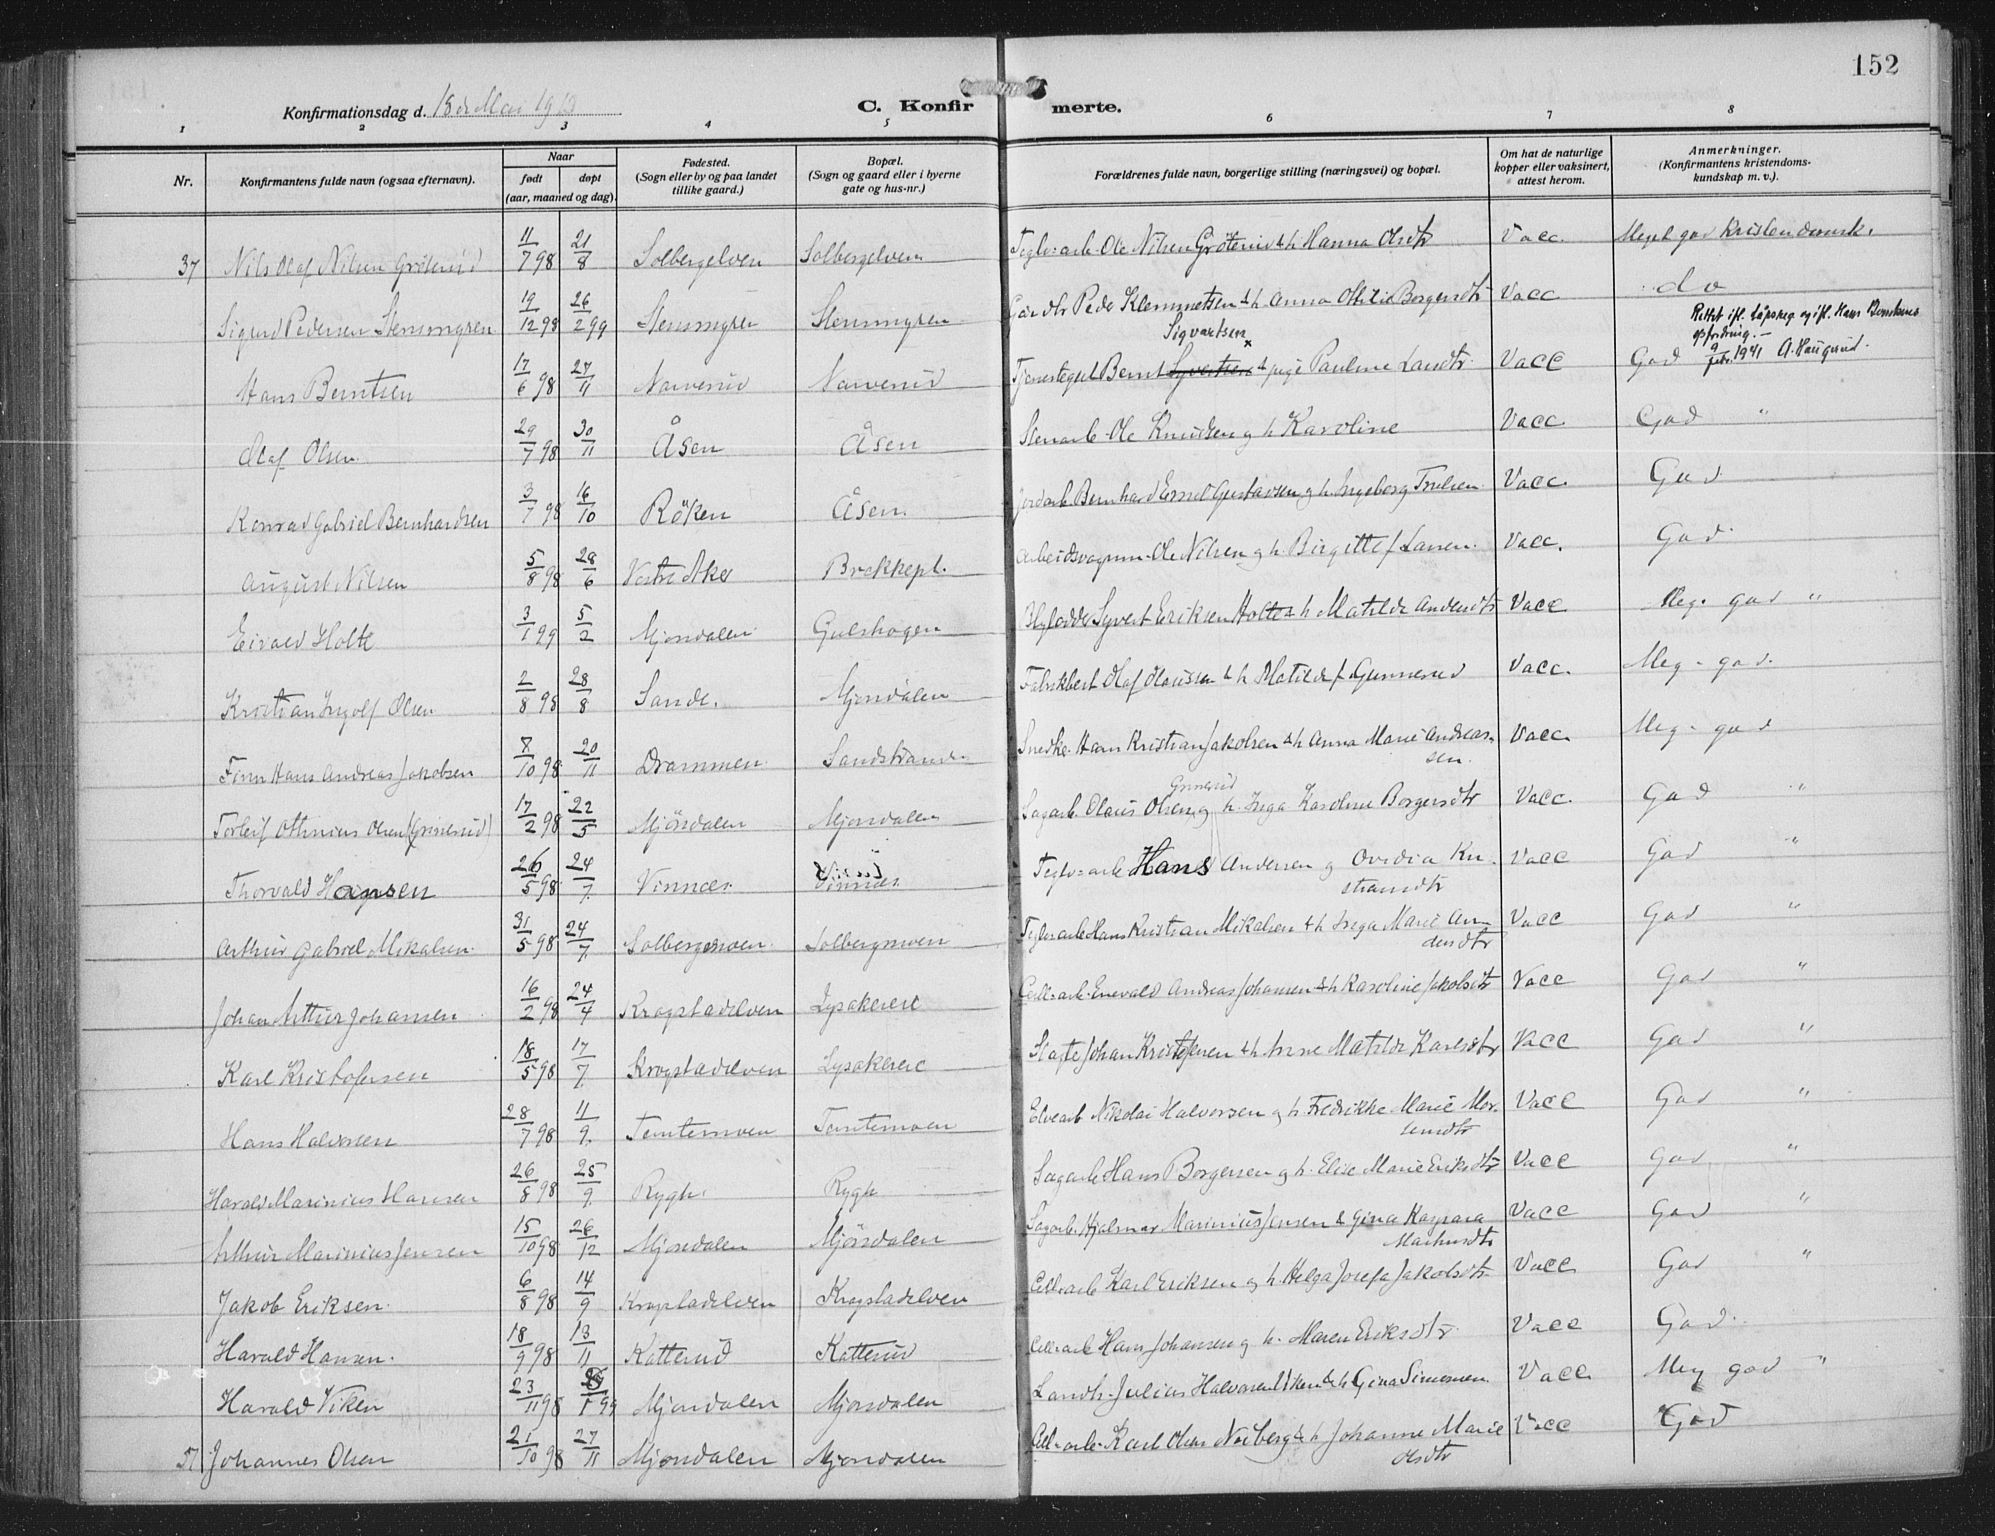 152
Konfirmationsdag d. 18de Mai 1913
C. Konfirmerte.
1 2 3 4 5 6 7 8
Nr.
Konfirmantens fulde navn (ogsaa efternavn).
Naar
født
døpt
(aar, maaned og dag).
Fødested.
(Sogn eller by og paa landet
tillike gaard.)
Bopæl.
(Sogn og gaard eller i byerne
gate og hus-nr.)
Forældrenes fulde navn, borgerlige stilling (næringsvei) og bopæl.
Om hat de naturlige
kopper eller vaksinert,
attest herom.
Anmerkninger.
(Konfirmantens kristendoms-
kundskap m. v.).
37 Nils Olaf Nilsen Gröterud 11/7 98 21/8 Solbergelven Solbergelven Teglv=arb. Ole Nilsen Gröterud & h Hanna Olsdtr Vacc. Meget god kristendomsk.
Sigurd Pedersen Stensmyren 19/12 98 26/2 99 Stensmyren Stensmyren Gårdbr Peder Klemmetsen & h. Anna Othilie Borgersdtr Vacc do
Sigvartsen
Rettet ifl. dåpsreg og ifl. Hans Berntsens
opfordring.—
Hans Berntsen 17/6 98 27/11 Narverud Narverud Tjenestegut Bernt Syvertsen & pige Pauline Larsdtr. Vacc God 9/febr. 1941 A. Haugerud.
Olaf Olsen 29/7 98 30/11 Åsen Åsen Stenarb. Ole Knudsen og h Karoline Vacc. God "
Konrad Gabriel Bernhardsen 3/7 98 16/10 Röken Åsen Jordarb. Bernhard Emil Gustavsen og h. Ingeborg Trulsen Vacc. God
August Nilsen 5/8 98 28/6 Vestre Aker Brekkepl. Arbeidsvogm. Ole Nilsen og h. Birgitte f Larsen. Vacc. God
Eivald Holte 3/1 99 5/2 Mjondalen Gulskogen Syvert Eriksen Holte & h Matilde Andersdtr Vacc Meg. god "
Kristian Ingolf Olsen 2/8 98 28/8 Sande. Mjondalen Olaf Olaussen & h Matilde f. Gunnerud Vacc. Meg - god.
Finn Hans Andreas Jakobsen 8/10 98 20/11 Drammen Sandstranden Snedke. Hans Kristian Jakobsen & h Anna Marie Andreas-
sen. Vacc. Meg - god
Grinerud
Torleif Othinius Olsen (Grinerud) 17/2 98 22/5 Mjösdalen Mjondalen Sagarb. Olaus Olsen og h. Inga Karoline Borgersdtr Vacc. God "
Thorvald Hansen 26/5 98 24/7 Vinnæs Vinnæs Teglv=arb Hans Andersen og Ovidia Kri-
stiansdtr Vacc God "
Arthur Gabriel Mikalsen. 31/5 98 24/7. Solbergmoen. Solbergmoen Teglv=arb Hans Kristian Mikalsen & h Inga Marie An-
dersdtr Vacc God "
Johan Arthur Johansen 16/2 98 24/4 Krogstadelven Lysakerere Cell=arb. Enevald Andreas Johansen & h Karoline Jakobsdtr Vacc God "
Karl Kristofersen 18/5 98 17/7. Krogstadelven Lysakerere Slagte Johan Kristofersen & h Anne Matilde Karlsdtr Vacc God "
Hans Halvorsen 28/7 98 11/9. Temtemoen Temtemoen Elvearb Nikolai Halvorsen og h. Fredrikke Marie Mor-
tensdtr Vacc God "
Harald Marinius Hansen 26/8 98 25/9. Rygh. Rygh Sagarb Hans Borgersen og h. Elise Marie Eriksdtr Vacc God "
Arthur Marinius Jensen 15/10 98 26/12 Mjondalen Mjösdalen Sagarb. Hjalmar Marinius Jensen & Gina Kaspara
Markusdtr Vacc God "
Jakob Eriksen. 6/8 98 14/9 Krogstadelven Krogstadelven Cell=arb Karl Eriksen og h. Helga Josefa Jakobsdtr. Vacc God "
Harald Hansen. 18/9 98 13/11 Katterud Katterud Cell=arb Hans Johansen og h. Maren Eriksdtr Vacc God.
Harald Viken 23/11 98 1 99 Mjondalen Mjondalen Landh. Julius Halvorsen Viken & h Gina Simensen Vacc Meg god "
57 Johannes Olsen 21/10 98 27/11 Mjondalen Mjondalen Cell=arb. Karl Olsen Norberg & h Johanne Marie
Olsdtr Vacc God